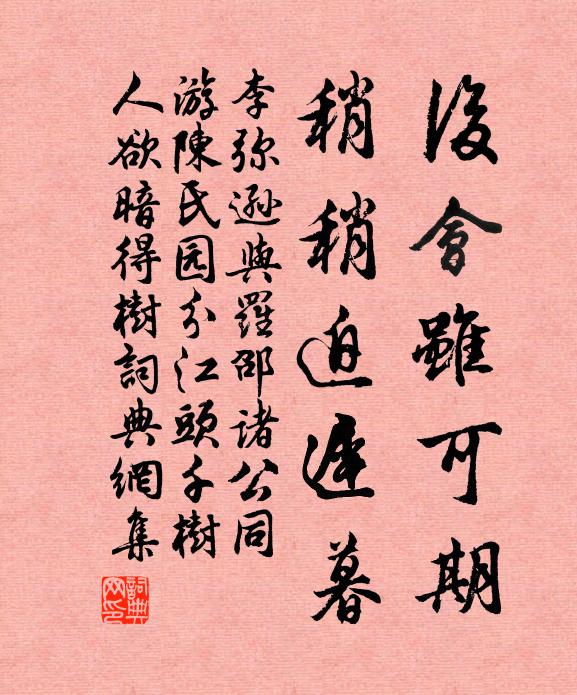 後會雖可期
稍稍迫遲暮
李弥遜與羅邵諸公同
游陳民园分江頭千樹
人欲暗得樹詞典網集
詞典
网印